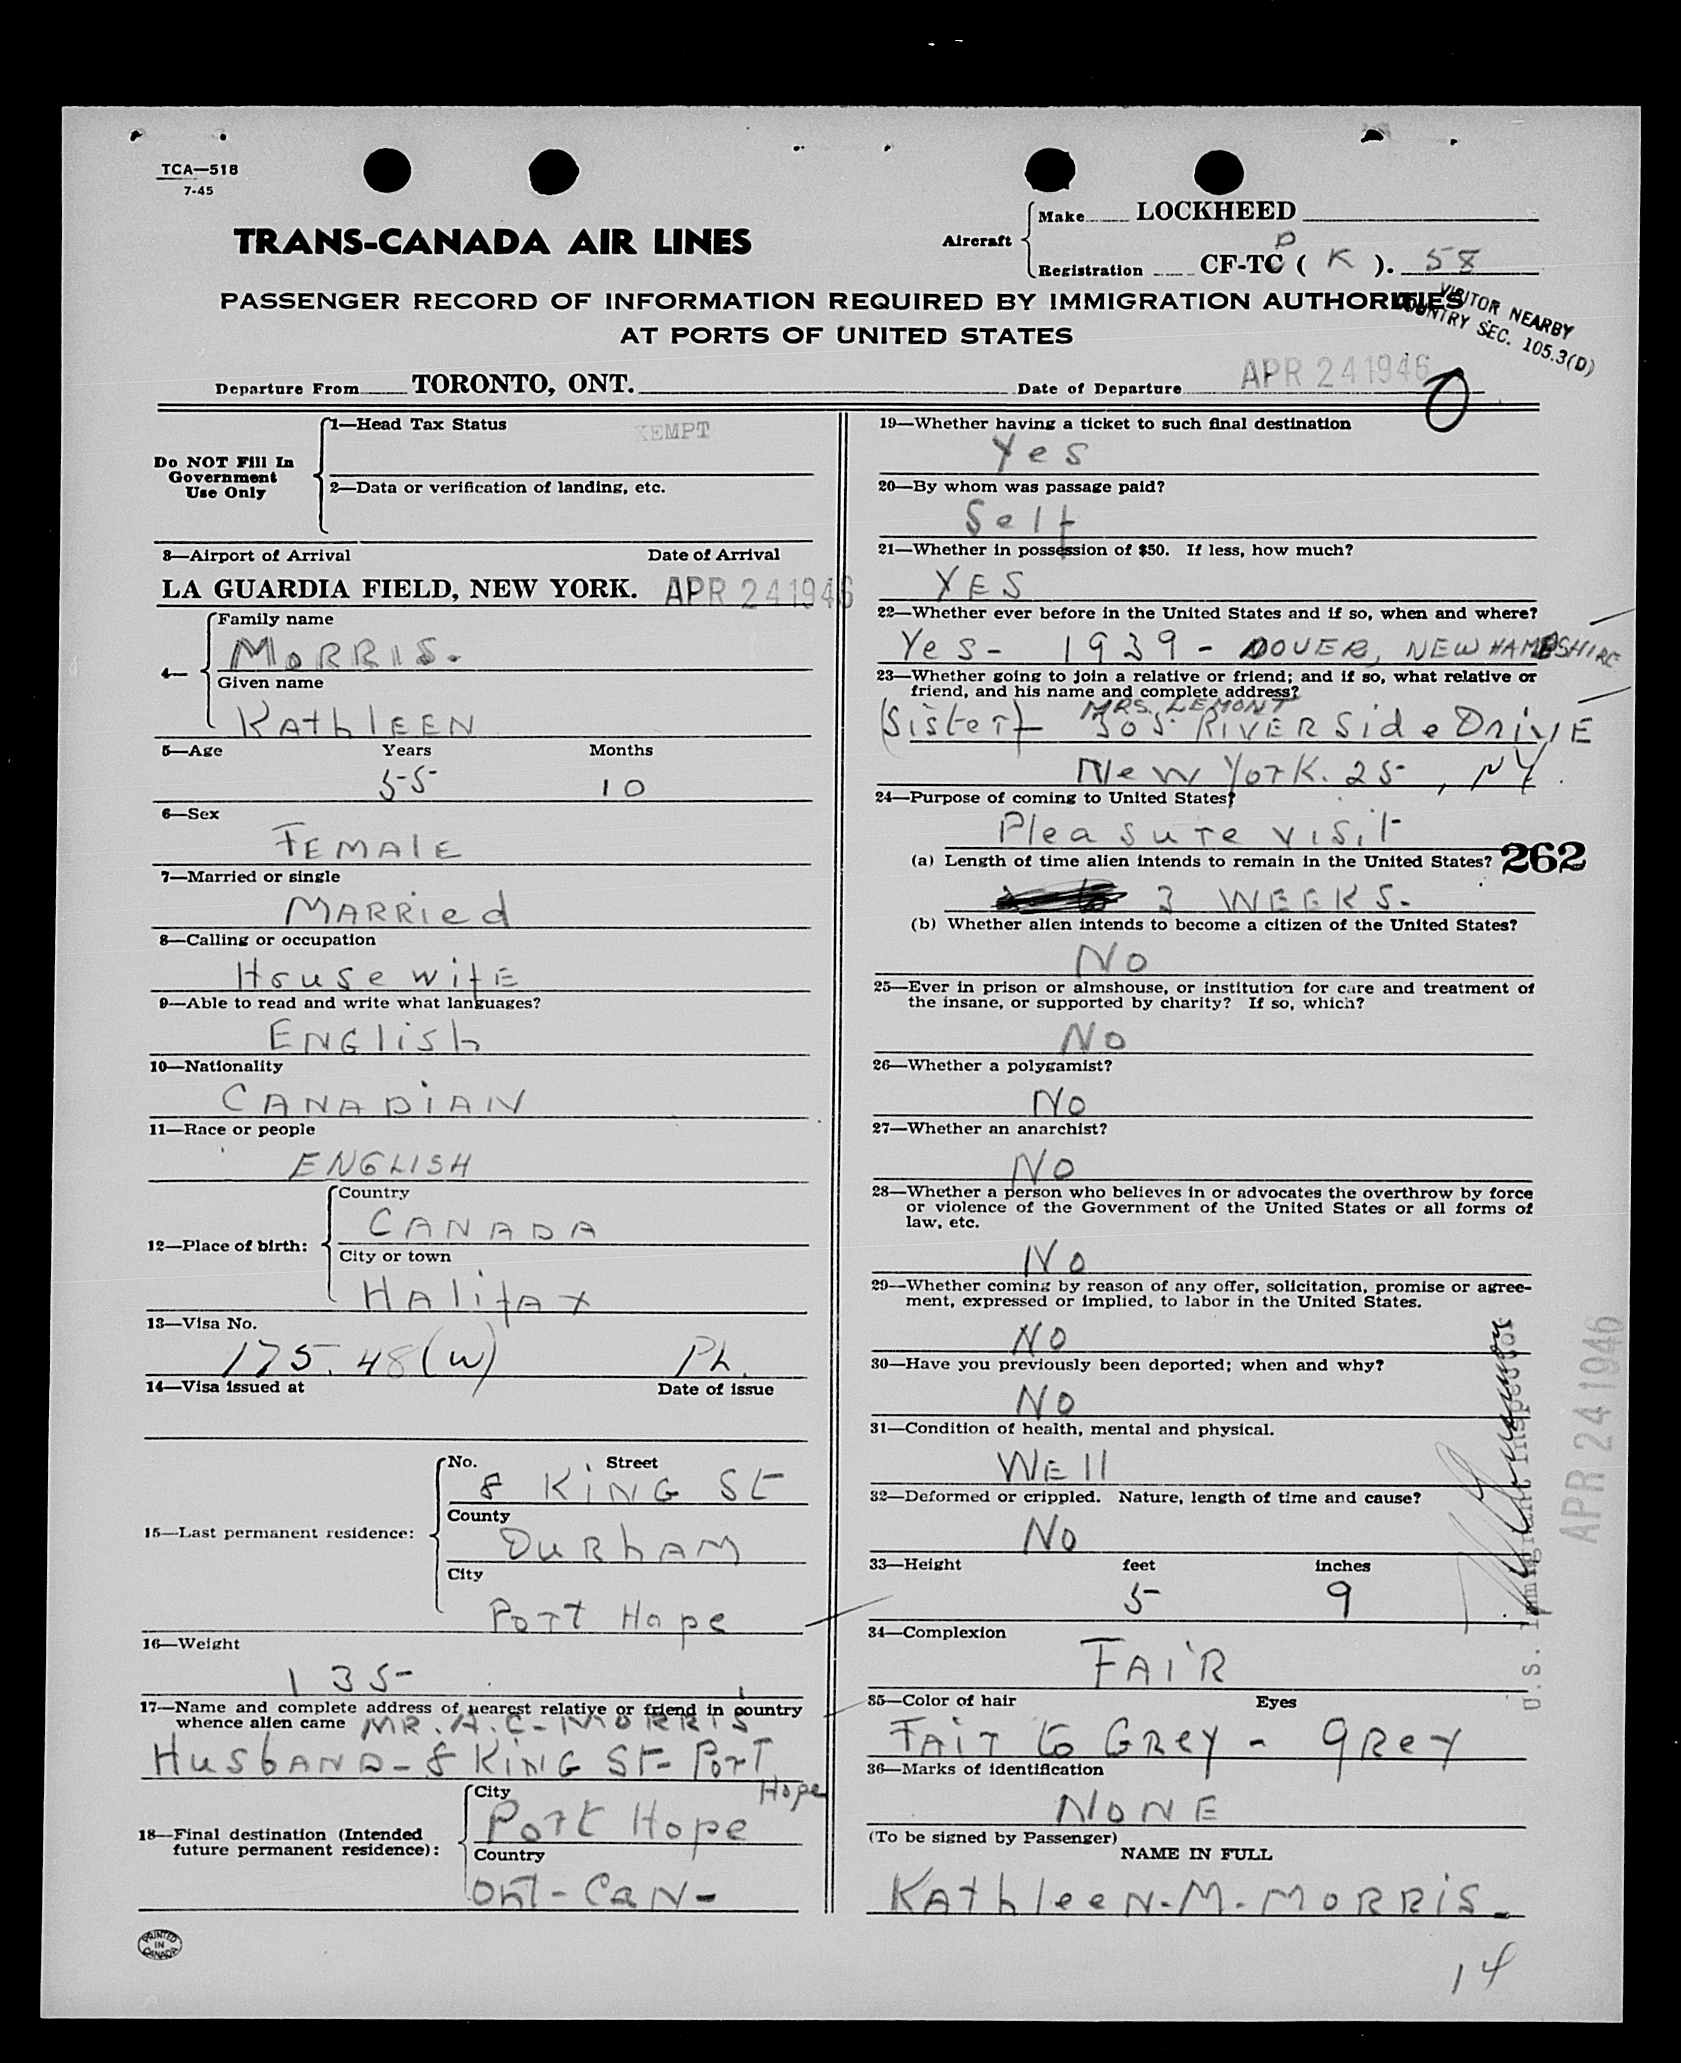 TCA—518
7-45
TRANS-CANADA AIR LINES
Aircraft
Make LOCKHEED
P
Registration CF-TC ( K ). 58
PASSENGER RECORD OF INFORMATION REQUIRED BY IMMIGRATION AUTHORITIES
AT PORTS OF UNITED STATES
VISITOR NEARBY
COUNTRY SEC. 105.3(D)
Departure From TORONTO, ONT. Date of Departure APR 24 1946
Do NOT Fill In
Government
Use Only
1—Head Tax Status EXEMPT
2—Data or verification of landing, etc.
3—Airport of Arrival Date of Arrival
LA GUARDIA FIELD, NEW YORK. APR 24 1946
4—
Family name
MORRIS.
Given name
KAthlEEN
5—Age Years Months
55 10
6—Sex
FEMAlE
7—Married or single
MARRied
8—Calling or occupation
HousewifE
9—Able to read and write what languages?
ENGlish
10—Nationality
CANADiAN
11—Race or people
ENGLISH
12—Place of birth:
Country
CANADA
City or town
HAlifAx
13—Visa No.
175.48(W) Ph.
14—Visa issued at Date of issue
15—Last permanent residence:
No. Street
8 KiNG St
County
DuRhAM
City
Port Hope
16—Weight
135
17—Name and complete address of nearest relative or friend in country
whence alien came MR. A. C. MORRIS
HusbAND - 8 KiNG St - Port
Hope
18—Final destination (Intended
future permanent residence):
City
Port Hope
Country
Ont - CaN -
PRINTED
IN
CANADA
19—Whether having a ticket to such final destination
Yes
20—By whom was passage paid?
Self
21—Whether in possession of $50. If less, how much?
YES
22—Whether ever before in the United States and if so, when and where?
Yes - 1939 - DOVER, NEW HAMPSHIRE
23—Whether going to join a relative or friend; and if so, what relative or
friend, and his name and complete address?
MRS. LEMONT
(Sister) - 305 RIVERSide DriVE
New York. 25, NY.
24—Purpose of coming to United States?
Pleasure visit
(a) Length of time alien intends to remain in the United States? 262
3 WEEKS.
(b) Whether alien intends to become a citizen of the United States?
No
25—Ever in prison or almshouse, or institution for care and treatment of
the insane, or supported by charity? If so, which?
No
26—Whether a polygamist?
No
27—Whether an anarchist?
No
28—Whether a person who believes in or advocates the overthrow by force
or violence of the Government of the United States or all forms of
law, etc.
No
29—Whether coming by reason of any offer, solicitation, promise or agree-
ment, expressed or implied, to labor in the United States.
NO
30—Have you previously been deported; when and why?
NO
31—Condition of health, mental and physical.
WEll
32—Deformed or crippled. Nature, length of time and cause?
No
33—Height feet inches
5 9
34—Complexion
FAiR
35—Color of hair Eyes
FAir to GRey - gRey
36—Marks of identification
NONE
(To be signed by Passenger)
NAME IN FULL
KAthleeN. M. MORRiS.
14
U.S. Immigrant Inspector
APR 24 1946